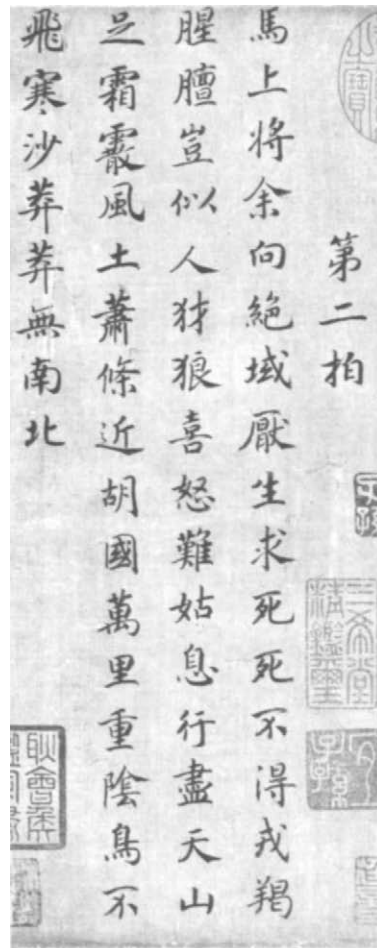 第二拍
馬上将余向絶域厭生求死死不得戎羯
腥膻豈似人犲狼喜怒難姑息行盡天山
足霜霰風土蕭條近胡國萬里重陰鳥不
飛寒沙莽莽無南北
三希堂精鑑璽
宜子孫